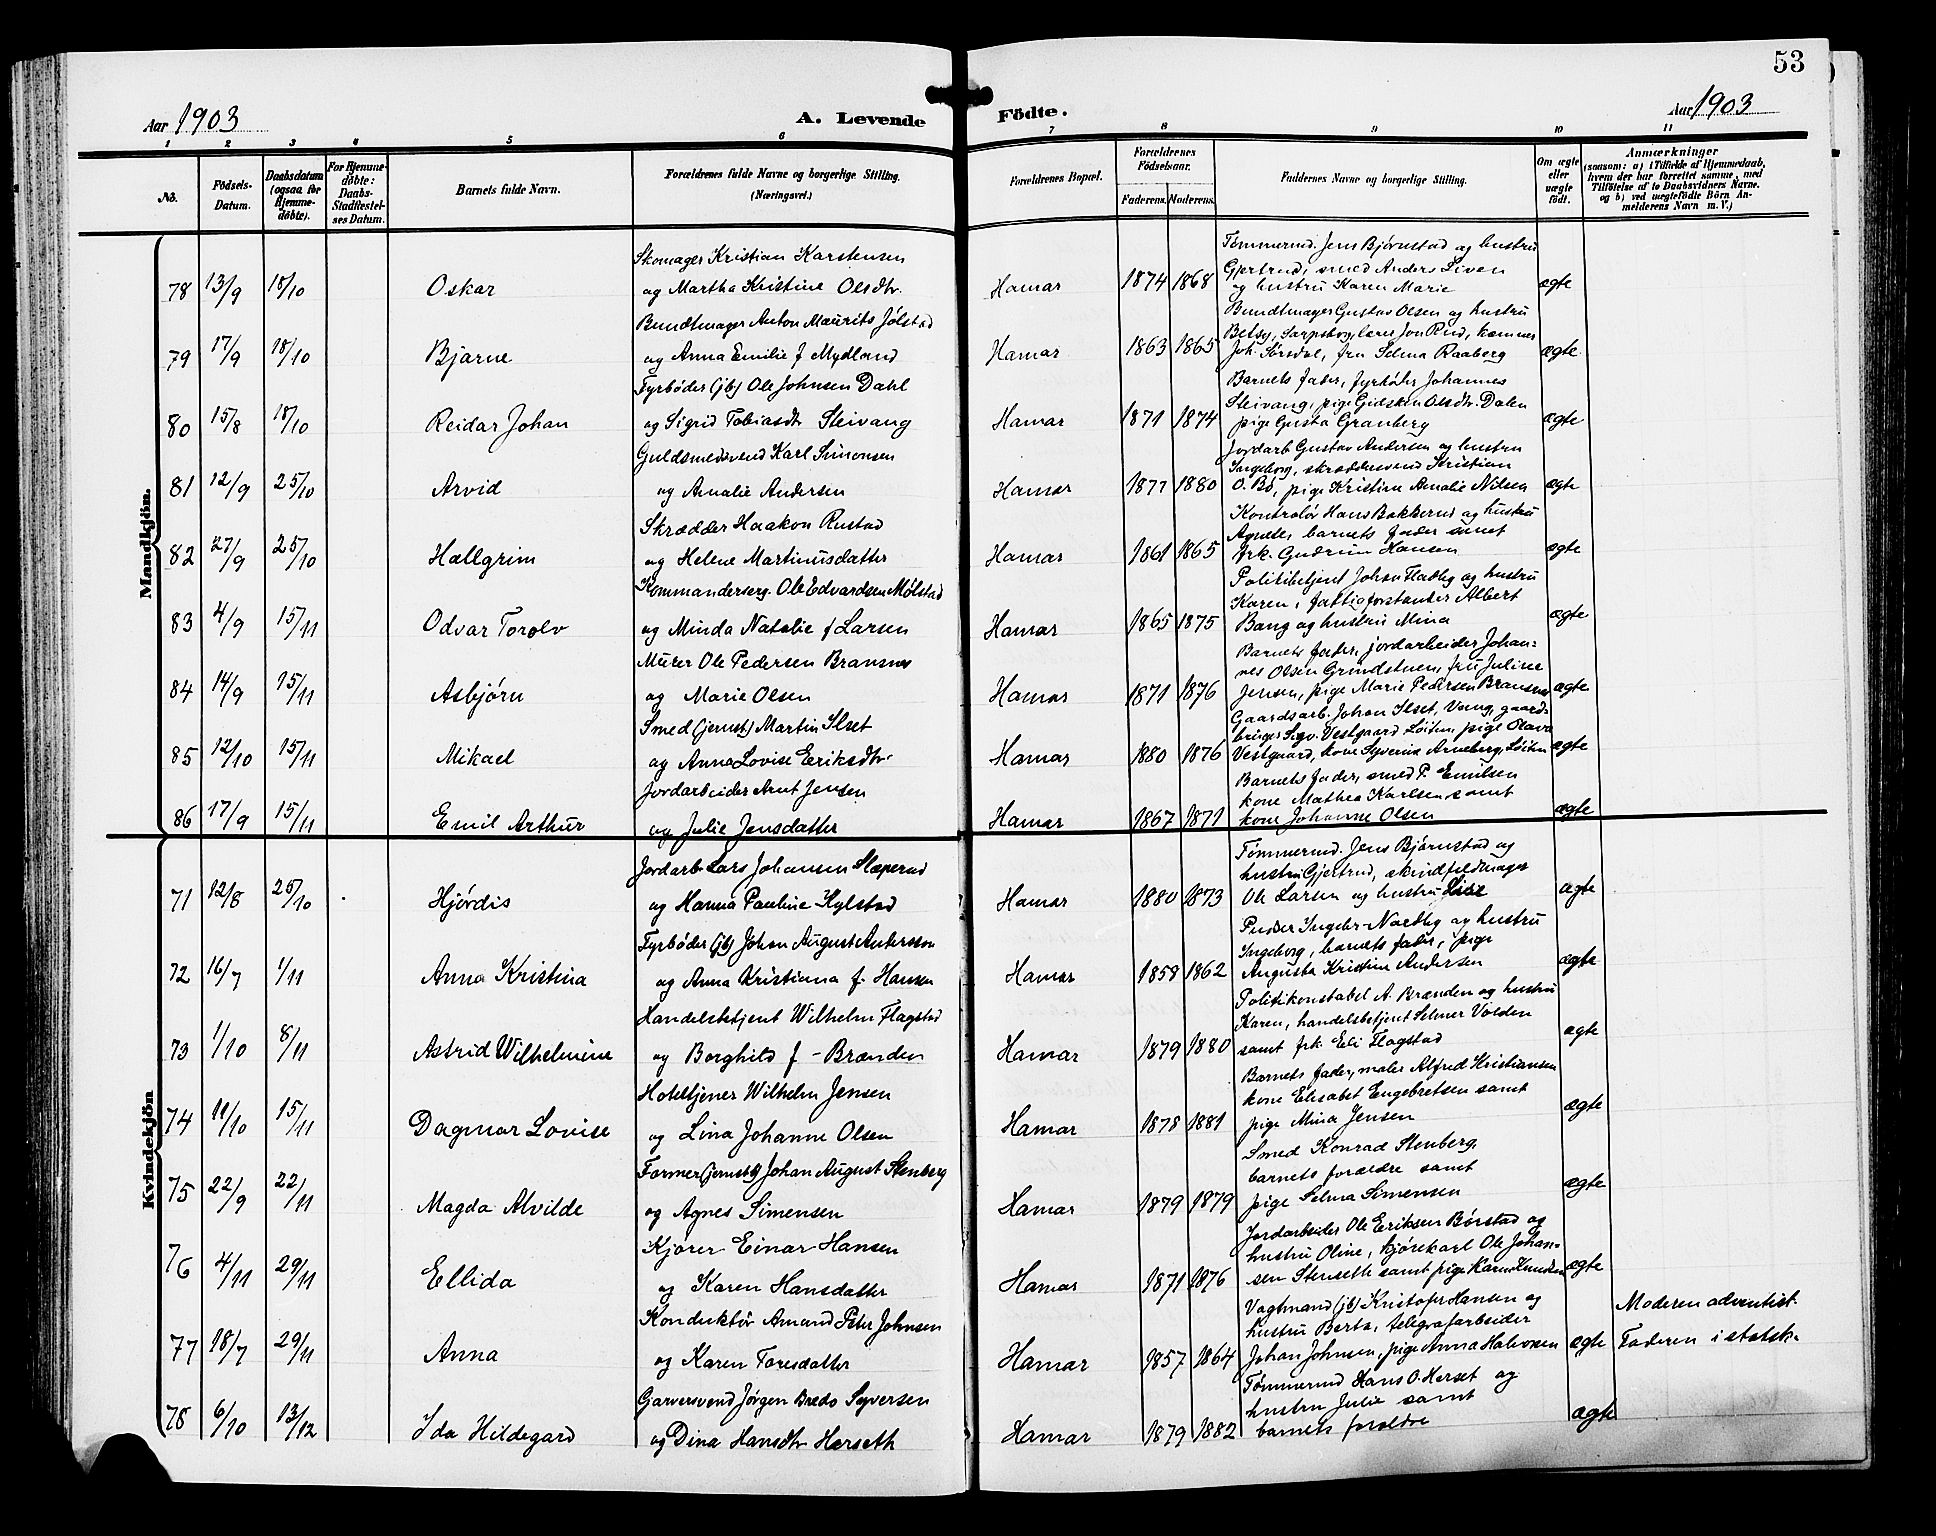 53
Aar 1903
A. Levende
Födte.
Aar 1903
1 2 3 4 5 6 7 8 9 10 11
No.
Födsels-Datum.
Daabsdatum (ogsaa for Hjemme-döbte).
For Hjemme-döbte: Daabs-Stadfæstel-ses Datum.
Barnets fulde Navn.
Forældrenes fulde Navne og borgerlige Stilling. (Næringsvei.)
Forældrenes Bopæl.
Forældrenes Födselsaar.
Faderens. Moderens.
Faddernes Navne og borgerlige Stilling.
Om ægte eller uægte födt.
Anmærkninger
(saasom: a) i Tilfælde af Hjemmedaab, hvem der har forrettet samme, med Tilföielse af to Daabsvidners Navne. og b) ved uægtefödte Börn An-melderens Navn m. V.)
Mandkjön.
Skomager Kristian Karstensen
78 13/9 18/10 Oskar og Martha Kristine Olsdtr. Hamar 1874 1868
Tømmermd. Jens Bjørnstad og hustru
Gjertrud, smed Anders Liven
og hustru Karen Marie
ægte
Bundtmager Anton Maurits Jølstad
79 17/9 18/10 Bjarne og Anna Emilie f Mydland Hamar 1863 1865
Bundtmager Gustav Olsen og hustru
Betsy, Sarpsborg, lærer Jon Rud, kæmner
Joh. Sörsdal, fru Selma Raaberg
ægte.
Fyrbøder (jb) Ole Johnsen Dahl
80 15/8 18/10 Reidar Johan og Sigrid Tobiasdtr Sleivang Hamar 1871 1874
Barnets fader, fyrbøder Johannes
Sleivang, pige Gidsken Olsdtr. Dalen
pige Gusta Granberg
ægte
Guldsmedsvend Karl Simonsen
81 12/9 25/10 Arvid og Amalie Andersen Hamar 1877 1880
Jordarb Gustav Andersen og hustru
Ingeborg, skræddersvend Kristian
O. Bö, pige Kristine Amalie Nilsen
ægte
Skrædder Haakon Rustad
82 27/9 25/10 Hallgrim og Helene Martinusdatter Hamar 1861 1865
Kontrolör Hans Bakkerud og hustru
Agnete, barnets fader samt
frk. Gudrun Hansen
ægte
Kommanderserg. Ole Edvardsen Mølstad
83 4/9 15/11 Odvar Torolv og Minda Natalie f Larsen Hamar 1865 1875
Politibetjent Johan Fladby og hustru
Karen, fattigforstander Albert
Bang og hustru Mina
ægte
Murer Ole Pedersen Bransnes
84 14/9 15/11 Asbjørn og Marie Olsen Hamar 1871 1876
Barnets fader, jordarbeider Johan-
nes Olsen Grindstuen, fru Juline
Jensen, pige Marie Pedersen Bransnes
ægte
Smed (jernst) Martin Ilset
85 12/10 15/11 Mikael og Anna Lovise Eriksdtr. Hamar 1880 1876
Gaardsarb. Johan Ilset, Vang, gaard-
bruger Sigv. Vestgaard Löiten, pige Olava
Vestgaard, kone Syverine Arneberg, Löiten
ægte
Jordarbeider Arnt Jensen
86 17/9 15/11 Emil Arthur og Julie Jensdatter Hamar 1867 1871
Barnets fader, smed P. Emilsen
kone Mathea Karlsen samt
kone Johanne Olsen
ægte
Kvindekjön
Jordarb Lars Johansen Slæperud
71 12/8 25/10 Hjørdis og Hanna Pauline Kylstad Hamar 1880 1873
Tømmermd. Jens Bjørnstad og
hustru Gjertrud, skindfeldmager
Ole Larsen og hustru Lise
ægte
Fyrbøder (jb) Johan August Andersson
72 16/7 1/11 Anna Kristina og Anna Kristiana f. Hansen Hamar 1858 1862
Pudser Ingebr. Nordby og hustru
Ingeborg, barnets fader, pige
Augusta Kristine Andersen
ægte
Handelsbetjent Wilhelm Flagstad
73 1/10 8/11 Astrid Wilhelmine og Borghild f - Brænden Hamar 1879 1880
Politikonstabel A. Brænden og hustru
Karen, handelsbetjent Selmer Volden
samt frk. Eli Flagstad
ægte
Hoteltjener Wilhelm Jensen
74 11/10 15/11 Dagmar Lovise og Lina Johanne Olsen Hamar 1878 1881
Barnets fader, maler Alfred Kristiansen
kone Elisabet Engebretsen samt
pige Mina Jensen
ægte
Former (jernst) Johan August Stenberg
75 22/9 22/11 Magda Alvilde og Agnes Simensen Hamar 1879 1879
Smed Konrad Stenberg,
barnets forældre samt
pige Selma Simensen
ægte
Kjører Einar Hansen
76 4/11 29/11 Ellida og Karen Hansdatter Hamar 1871 1876
Jordarbeider Ole Eriksen Børstad og
hustru Oline, kjørekarl Ole Johan-
sen Stenseth samt pige Karen Knudsen
ægte
Konduktør Amand Peter Johnsen
77 18/7 29/11 Anna og Karen Toresdatter Hamar 1857 1864
Vagtmand (jb) Kristofer Hansen og
hustru Berta, telegrafarbeider
Johan Johnsen, pige Anna Halvorsen
ægte
Moderen adventist.
Faderen i statsk.
Garversvend Jørgen Bredo Syversen
78 6/10 13/12 Ida Hildegard og Dina Hansdtr Herseth Hamar 1879 1882
Tømmermd Hans O. Herset og
hustru Julie samt
barnets forældre
ægte